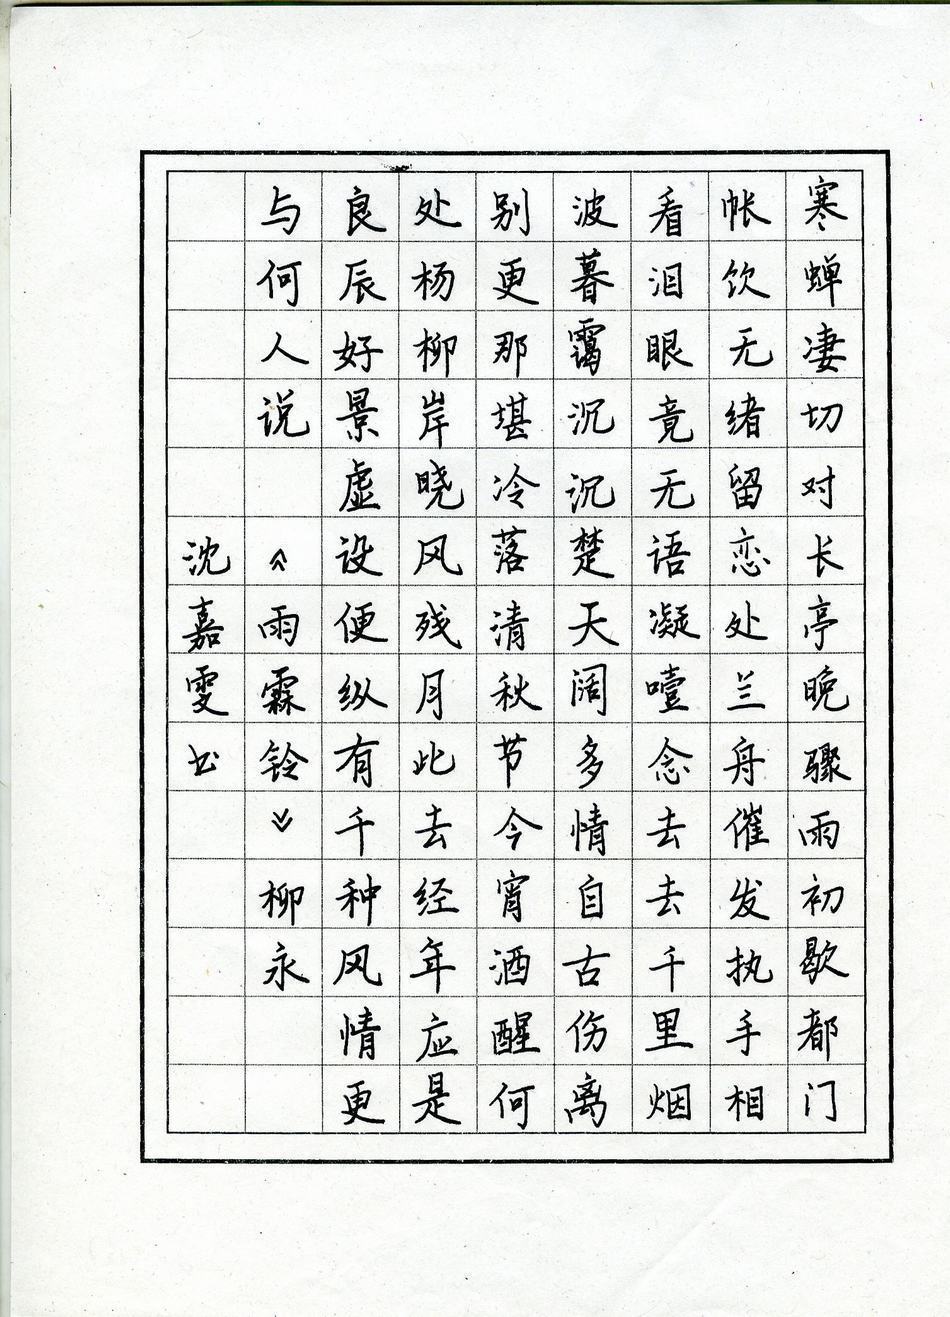 寒蝉凄切对长亭晚骤雨初歇都门
帐饮无绪留恋处兰舟催发执手相
看泪眼竟无语凝噎念去去千里烟
波暮霭沉沉楚天阔多情自古伤离
别更那堪冷落清秋节今宵酒醒何
处杨柳岸晓风残月此去经年应是
良辰好景虚设便纵有千种风情更
与何人说 《雨霖铃》柳永
沈嘉雯书